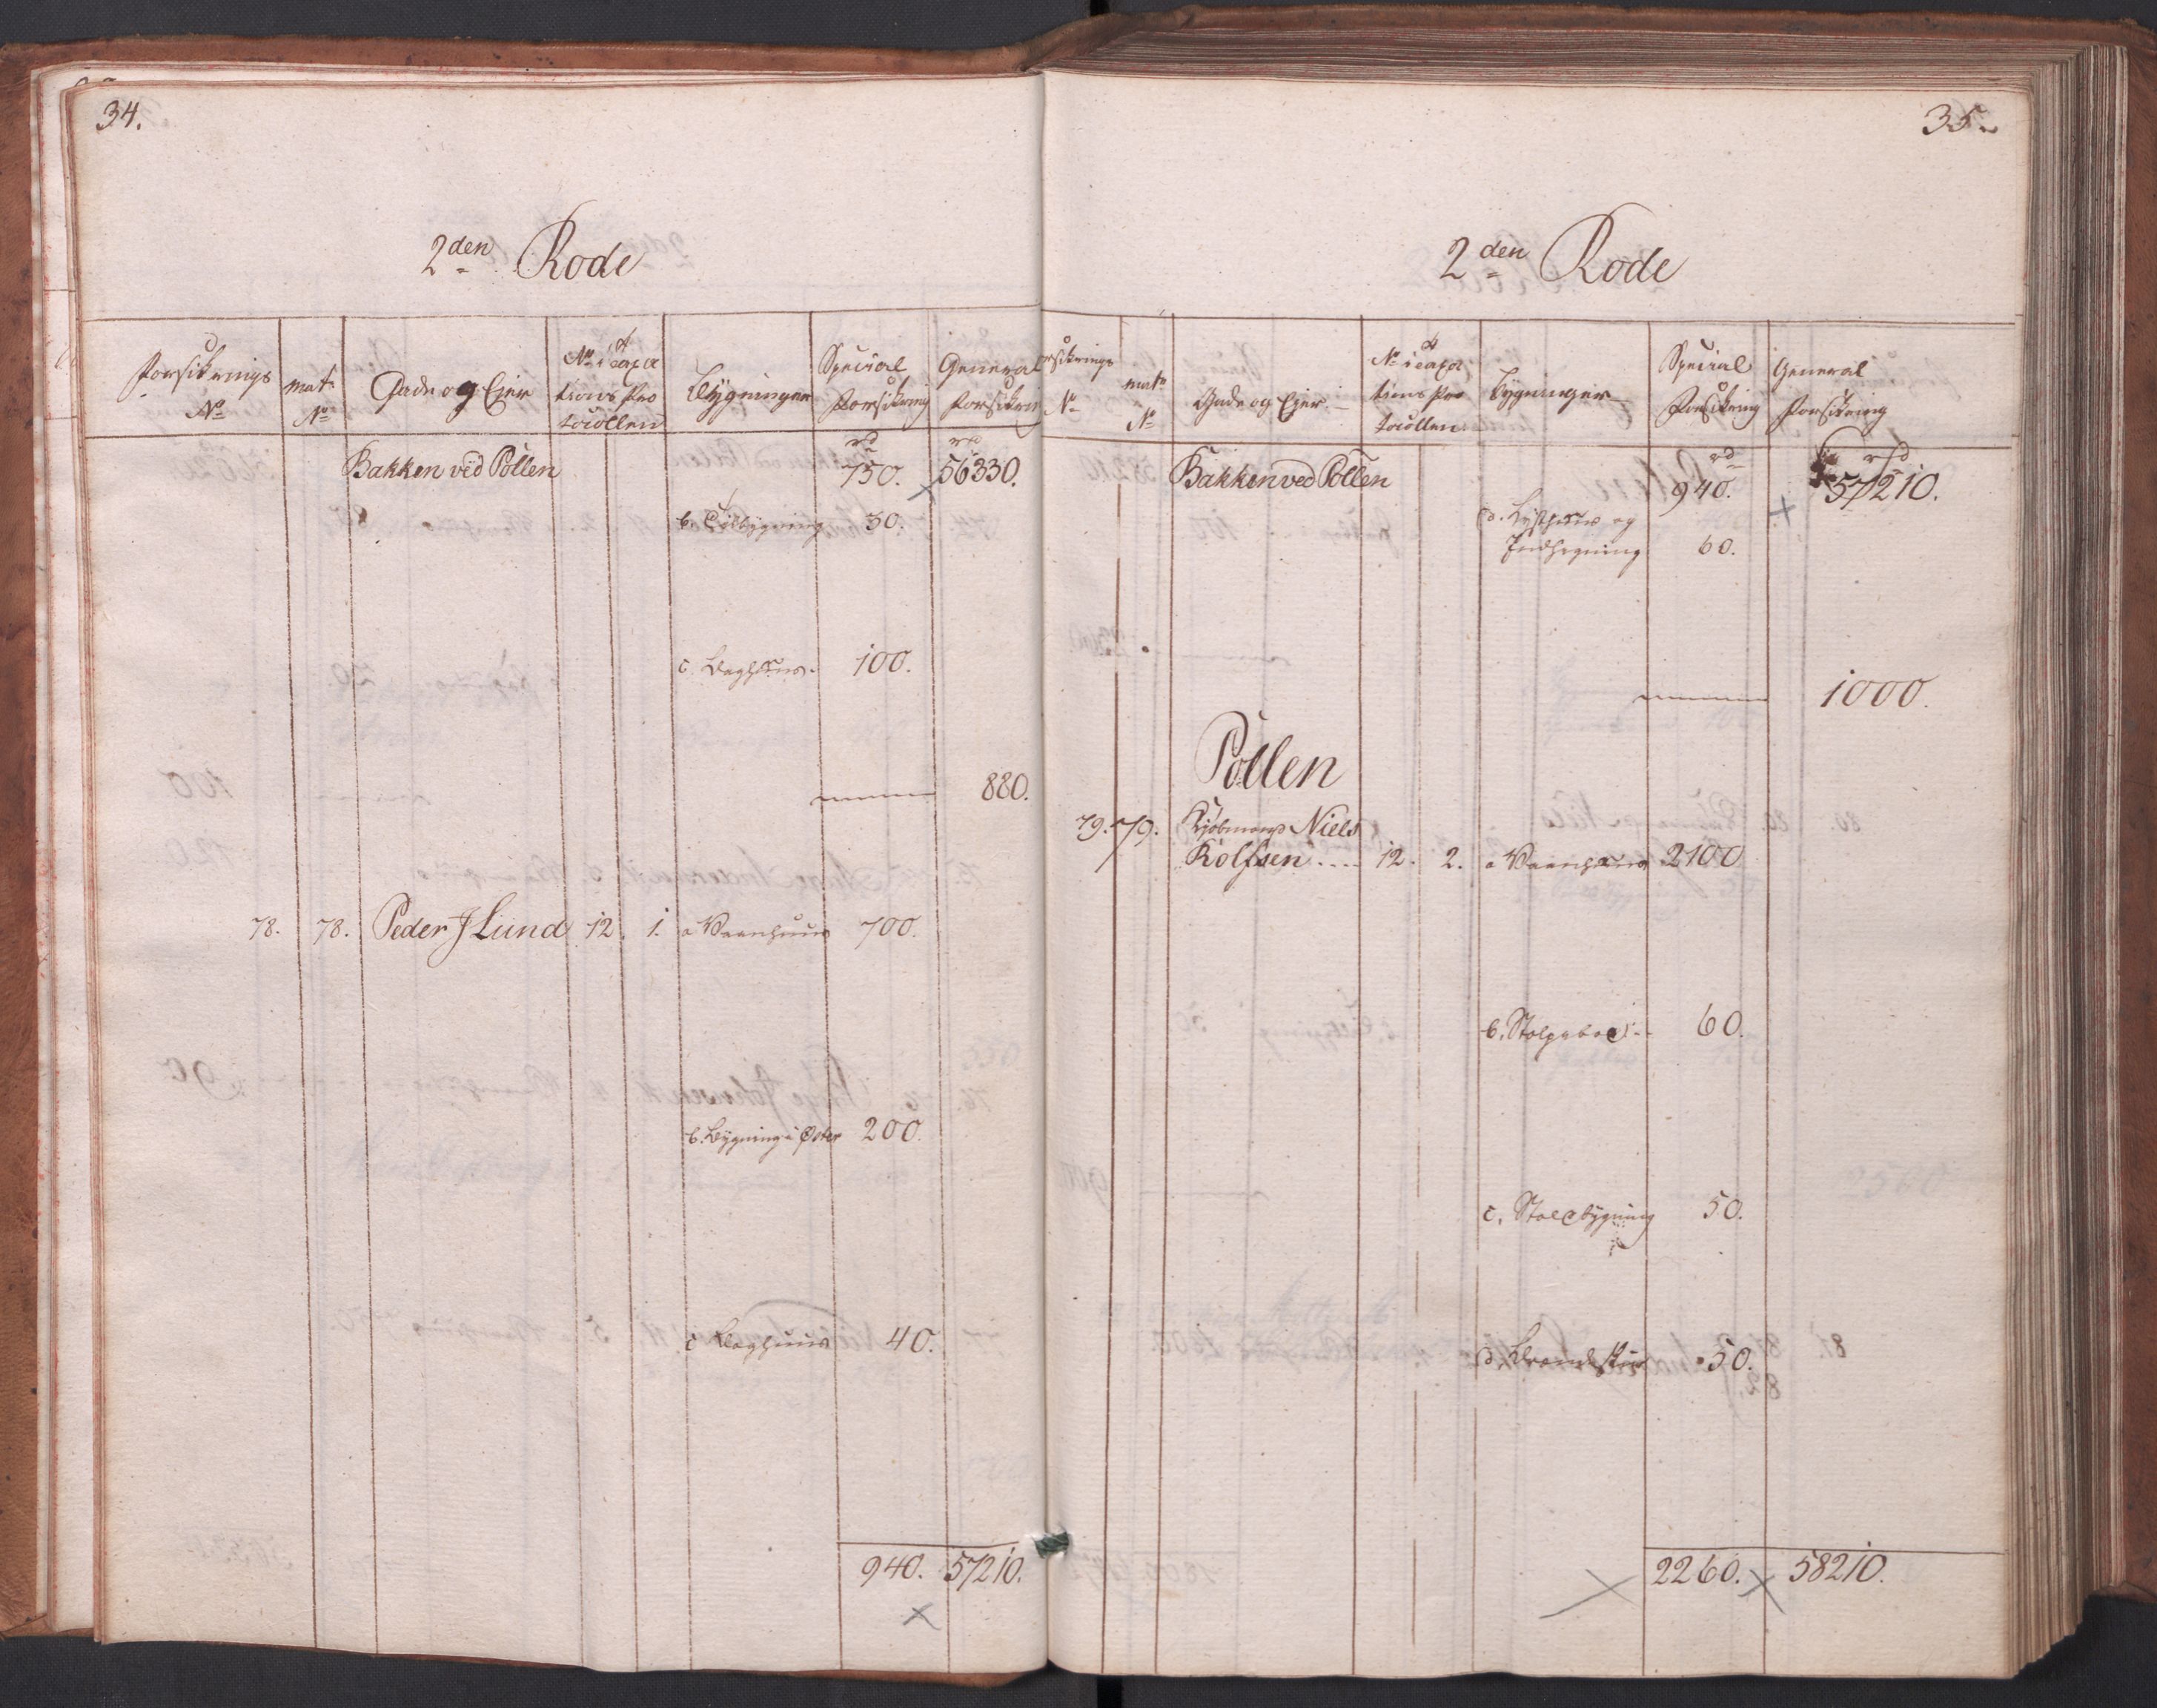 34.
2den Rode
Forsikrings No
Matr No
Gade og Ejer
No i Taxa
tions Pro
tocollen
Bygninger
Special Forsikring
General Forsikring
Bakken ved Pollen rd 750. rd 56330.
b. Tilbygning 30.
c. Baghuus. 100.
880.
78. 78. Peder J Lund 12. 1. a Vaanhuus 700.
b. Bygning i Øster 200.
c Baghuus 40.
940. 57210.
35.
2den Rode
Forsikrings No
Matr No
Gade og Ejer
No i Taxa
tions Pro
tocollen
Bygninger
Special Forsikring
General Forsikring
Bakken ved Pollen rd 940. rd 57210.
d. Lysthuus og
Indhegning 60.
1000.
Pollen
79. 79. Kjøbmand Niels
Rolfsen .... 12. 2. a Vaanhuus 2100
b. Stolpeboe 60.
c. Stald bygning 50.
d. Brendeskur 50.
2260. 58210.